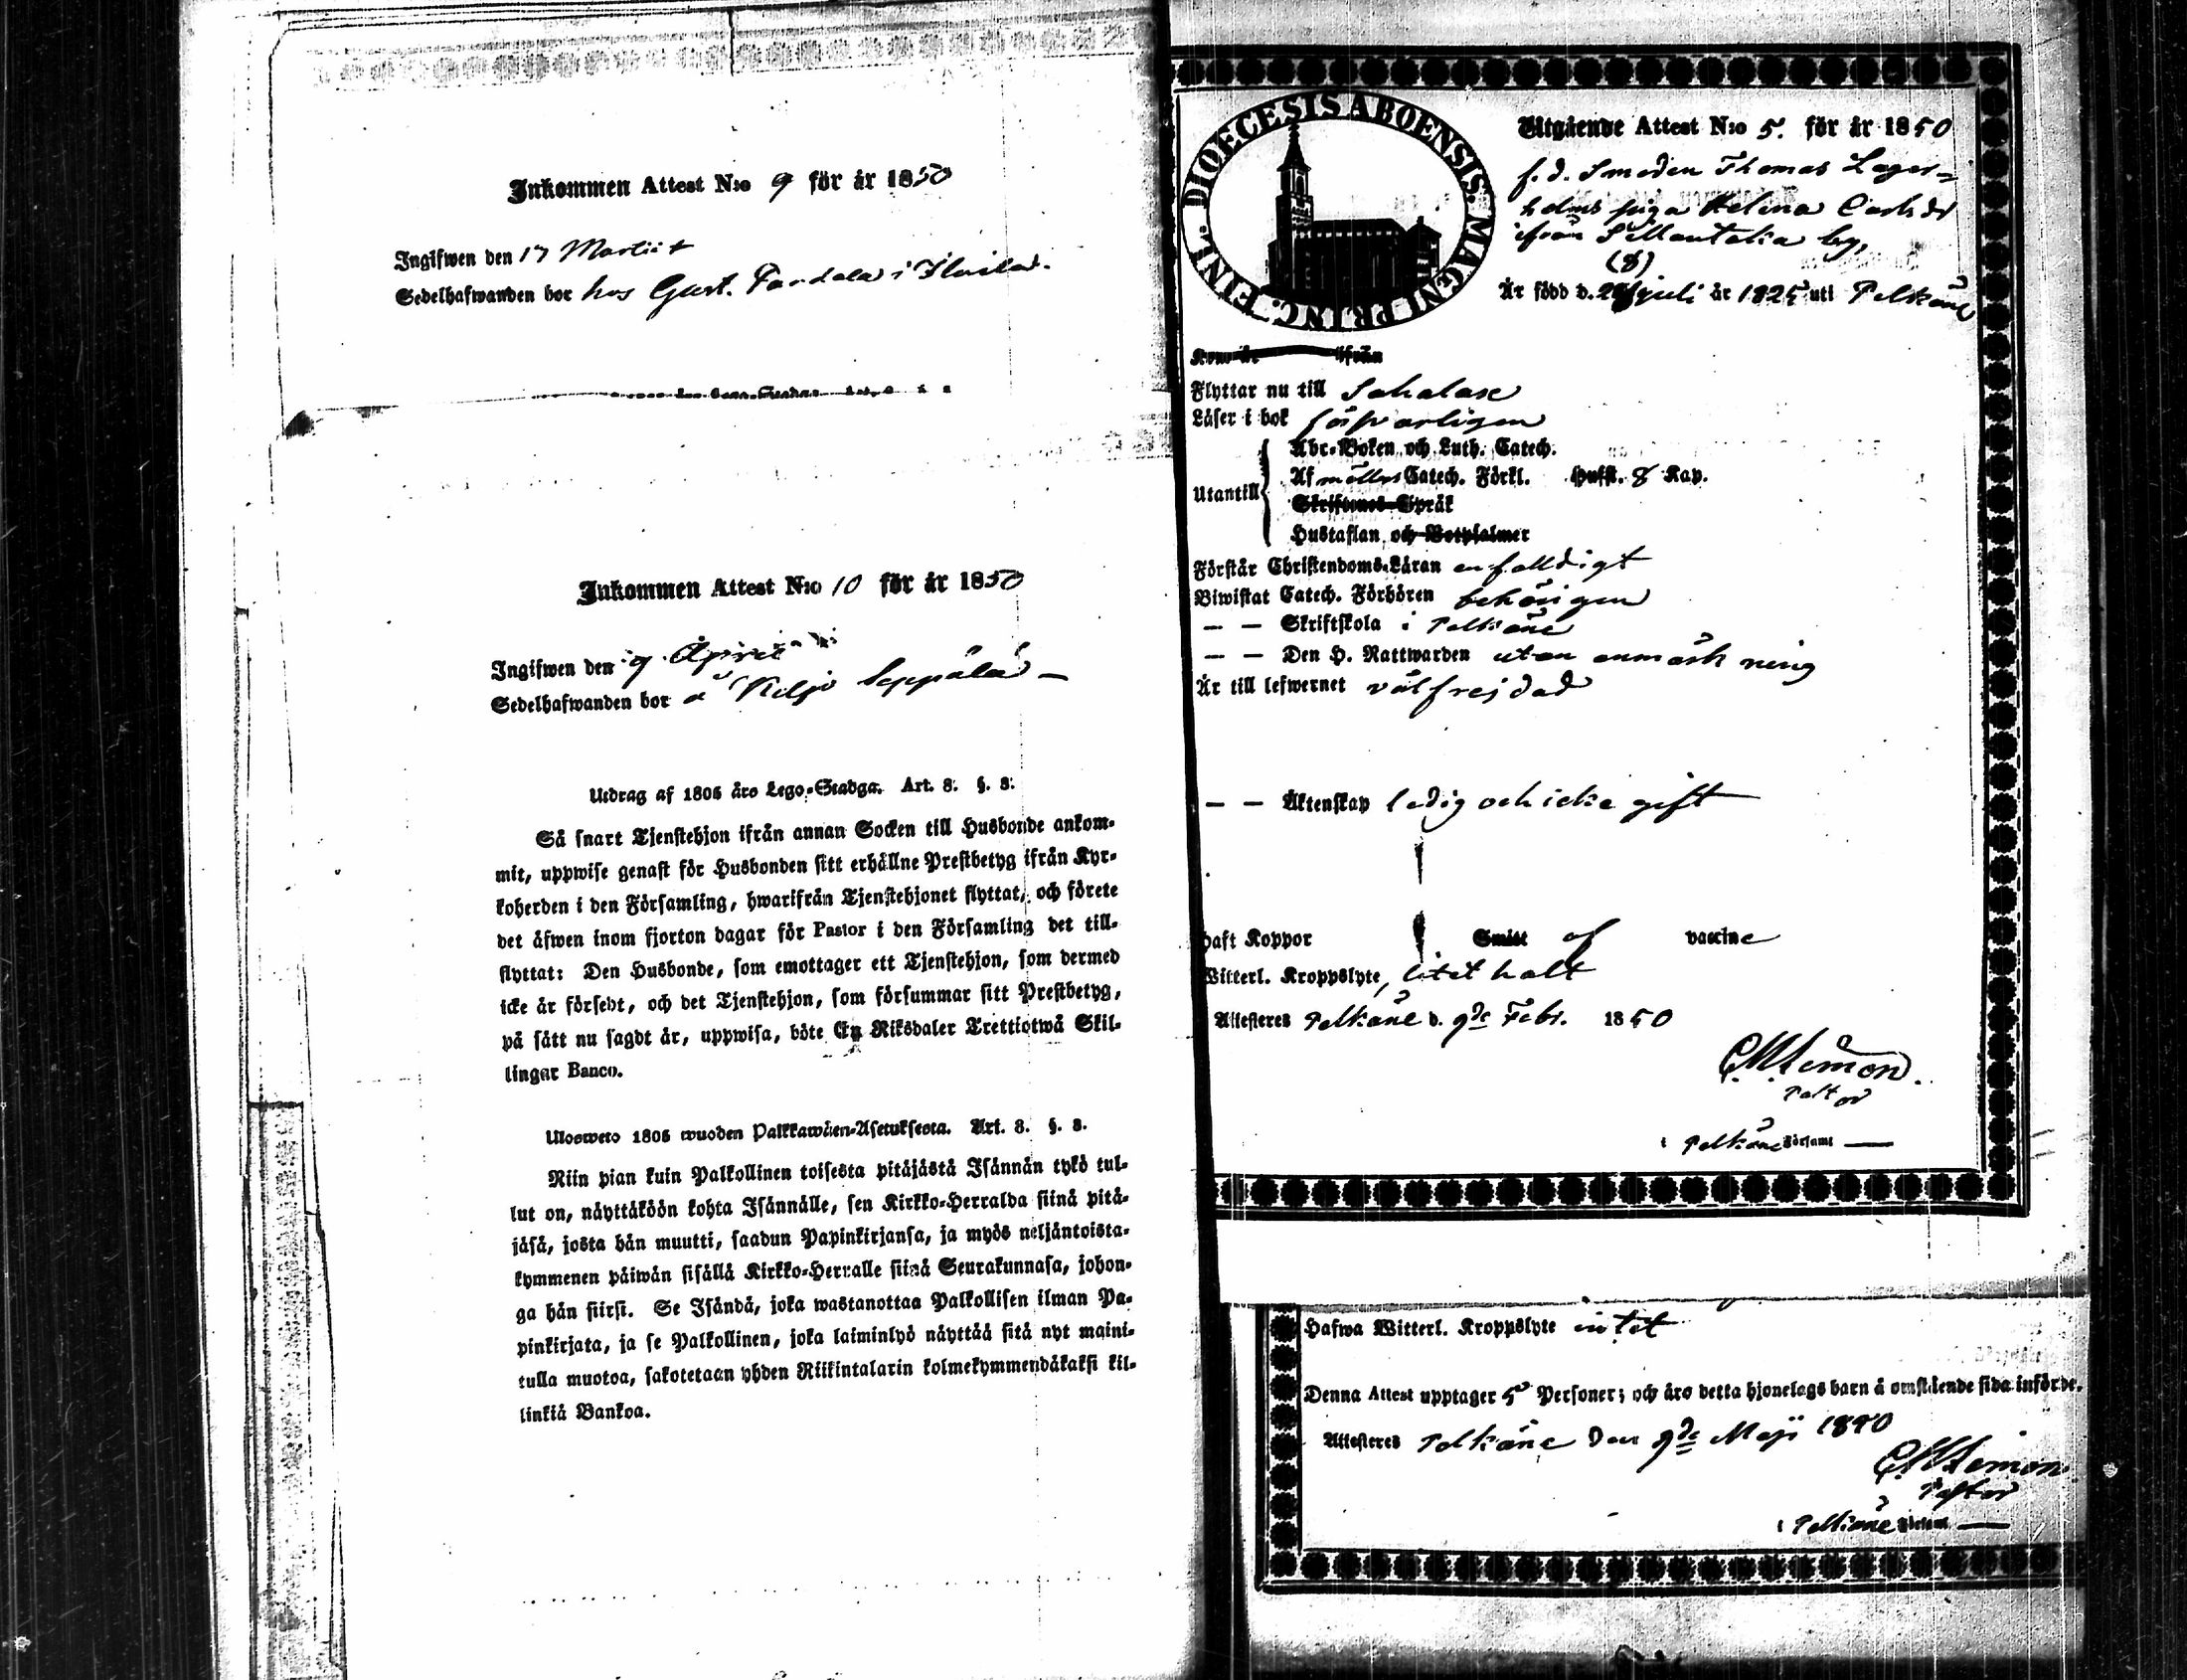 Inkommen Attest N:o 9 för år 1850
Ingifwen den 17 Martii
Sedelhafwanden bor hos Gust. i
Inkommen Attest N:o 10 för år 1850
Ingifwen den 9 April
Sedelhafwanden bor å Keljo Seppälä
Utdrag af 1805 års Lego-Stadga. Art. 8. §. 8.
Så snart Tjenstehjon ifrån annan Socken till Husbonde ankom-
mit, uppwise genast för Husbonden sitt erhållne Prestbetyg ifrån Kyr-
koherden i den Församling, hwarifrån Tjenstehjonet flyttat, och förete
det äfwen inom fjorton dagar för Pastor i den Församling det till-
flyttat: Den Husbonde, som emottager ett Tjenstehjon, som dermed
icke är försedt, och det Tjenstehjon, som försummar sitt Prestbetyg,
på sätt nu sagdt är, uppwisa, böte En Riksdaler Trettiotwå Skil-
lingar Banco.
Ulosweto 1805 wuoden Palkkawäen-Asetuksesta. Art. 8. §. 8.
Niin pian kuin Palkollinen toisesta pitäjästä Isännän tykö tul-
lut on, näyttäköön kohta Isännälle, sen Kirkko-Herralda siinä pitä-
jäsä, josta hän muutti, saadun Papinkirjansa, ja myös neljäntoista-
kymmenen päiwän sisällä Kirkko-Herralle siinä Seurakunnasa, johon-
ga hän siirsi. Se Isändä, joka wastanottaa Palkollisen ilman Pa-
pinkirjata, ja se Palkollinen, joka laiminlyö näyttää sitä nyt maini-
tulla muotoa, sakotetaan yhden Riikintalarin kolmekymmendäkaksi kil-
linkiä Bankoa.
DIOECESIS ABOENSIS. MAGNI PRINC. FINL.
Utgående Attest N:o 5. för år 1850
f. d. Smeden Thomas Lager-
holms piga Helena Carls dr
ifrån by,
(8)
Är född d. juli år 1825 uti Pelkäne
Kom år ifrån
Flyttar nu till Sahalax
Läser i bok försvarligen
Utantill
Abc-Boken och Luth. Catech.
Af möllers Catech. Förkl. Hufst. 8 Kap.
Skriftenes Språk
Hustaflan och Botpsalmer
Förstår Christendoms-Läran enfalldigt
Biwistat Catech. Förhören behörigen
— — Skriftskola i Pelkäne
— — Den H. Nattwarden utan anmärkning
Är till lefwernet välfrejdad
— — Äktenskap ledig och icke gift
haft Koppor Smitt af vaccine
Witterl. Kroppslyte, litet halt
Attesteres Pelkäne d. 9de Febr. 1850
C. M. Lemon.
Pastor
i Pelkäne Församl
Hafwa Witterl. Kroppslyte intet
Denna Attest upptager 5 Personer; och äro detta hjonelags barn å omstående sida införde.
Attesteres Pelkäne den 9de Maji 1850
C M Lemon
Pastor
i Pelkäne Församl